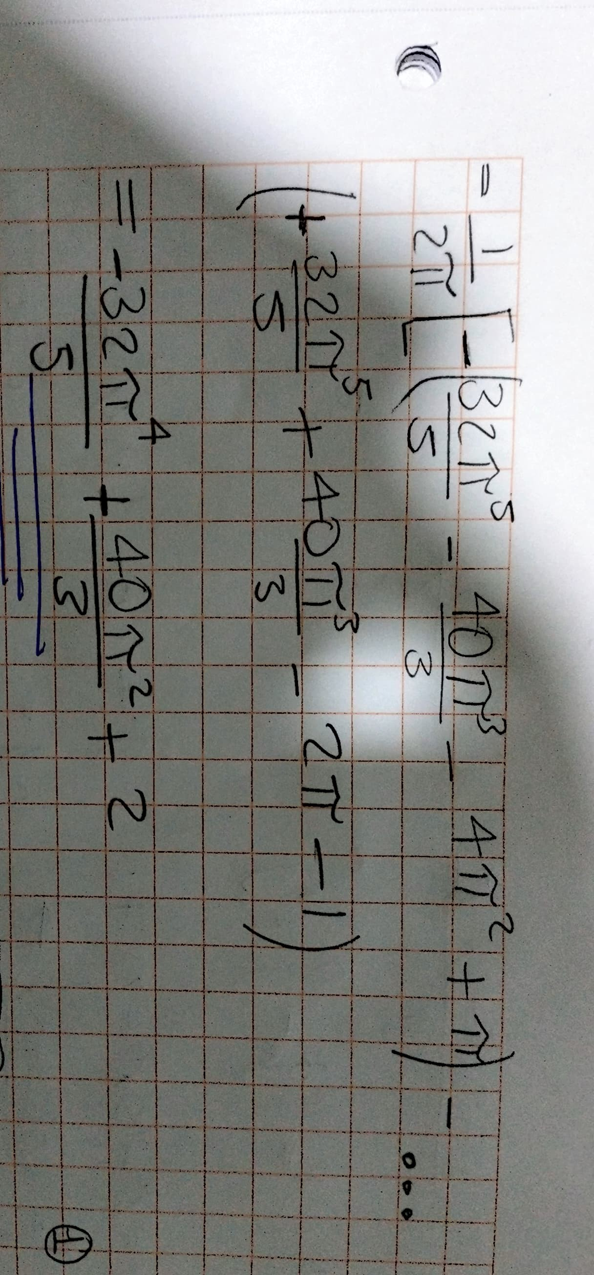 = 1/2π [ - ( 32π⁵/5 - 40π³/3 - 4π² + π ) - ...
( + 32π⁵/5 + 40π³/3 - 2π - 1 )
= -32π⁴/5 + 40π²/3 + 2
1